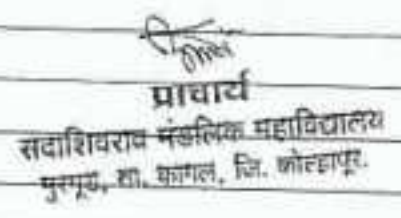 प्राचार्य
सदाशिवराव मंडलिक महाविद्यालय
मुरगूड, ता. कागल, जि. कोल्हापूर.